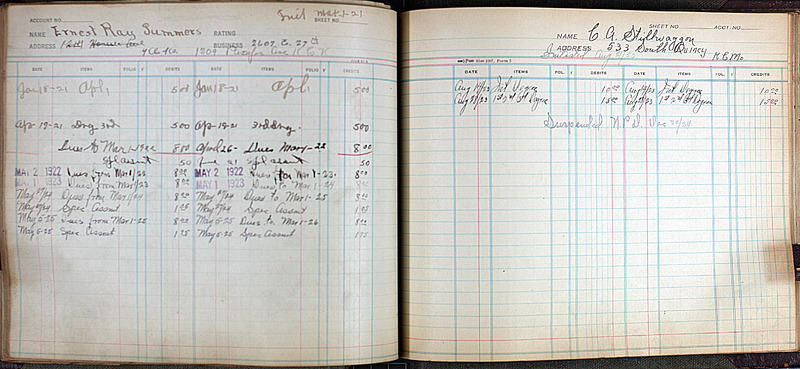 Init Mar-1-21
ACCOUNT NO.
SHEET NO.
NAME Ernest Ray Summers RATING
ADDRESS BUSINESS 2607 E. 27th
1209
DATE ITEMS FOLIO DEBITS DATE ITEMS FOLIO CREDITS
Jan 18-21 Apl 500 Jan 18-21 Apl 500
Apr-19-21 Deg 3rd 500 Apr-19-21 3rd Deg. 500
Dues to Mar-1-1922 800 April 26- Dues Mar 1-22 8.00
Spl assmt 50 21 Spl assmt 50
MAR 2 1922 Dues from Mar 1/22 800 MAY 2 1922 Dues for Mar 1-23. 800
1923 Dues from Mar 1/23 800 MAY 1 1923 Dues to Mar 1-24 800
May /24 Dues from Mar 1/24 800 May /24 Dues to Mar 1-25 800
May /24 Spec Assmt 1 75 May /24 Spec Assmt 1 75
May 5-25 Dues from Mar 1-25 800 May 5-25 Dues to Mar 1-26 800
May 5-25 Spec Assmt 1 75 May 5-25 Spec Assmt 1 75
SHEET NO. ACCT. NO.
NAME C. A. Stillwaggon
ADDRESS 533 South Quincy K.C.Mo.
Initiated Aug 8/23
DATE ITEMS FOL. DEBITS DATE ITEMS FOL. CREDITS
Aug 8/23 1st Degree 10.00 Aug 8/23 1st Degree 10.00
Aug 8/23 1st 2nd 3rd Degree 15.00 Aug 8/23 1st 2nd 3rd Degree 15.00
Suspended N.P.D. Dec 30/24